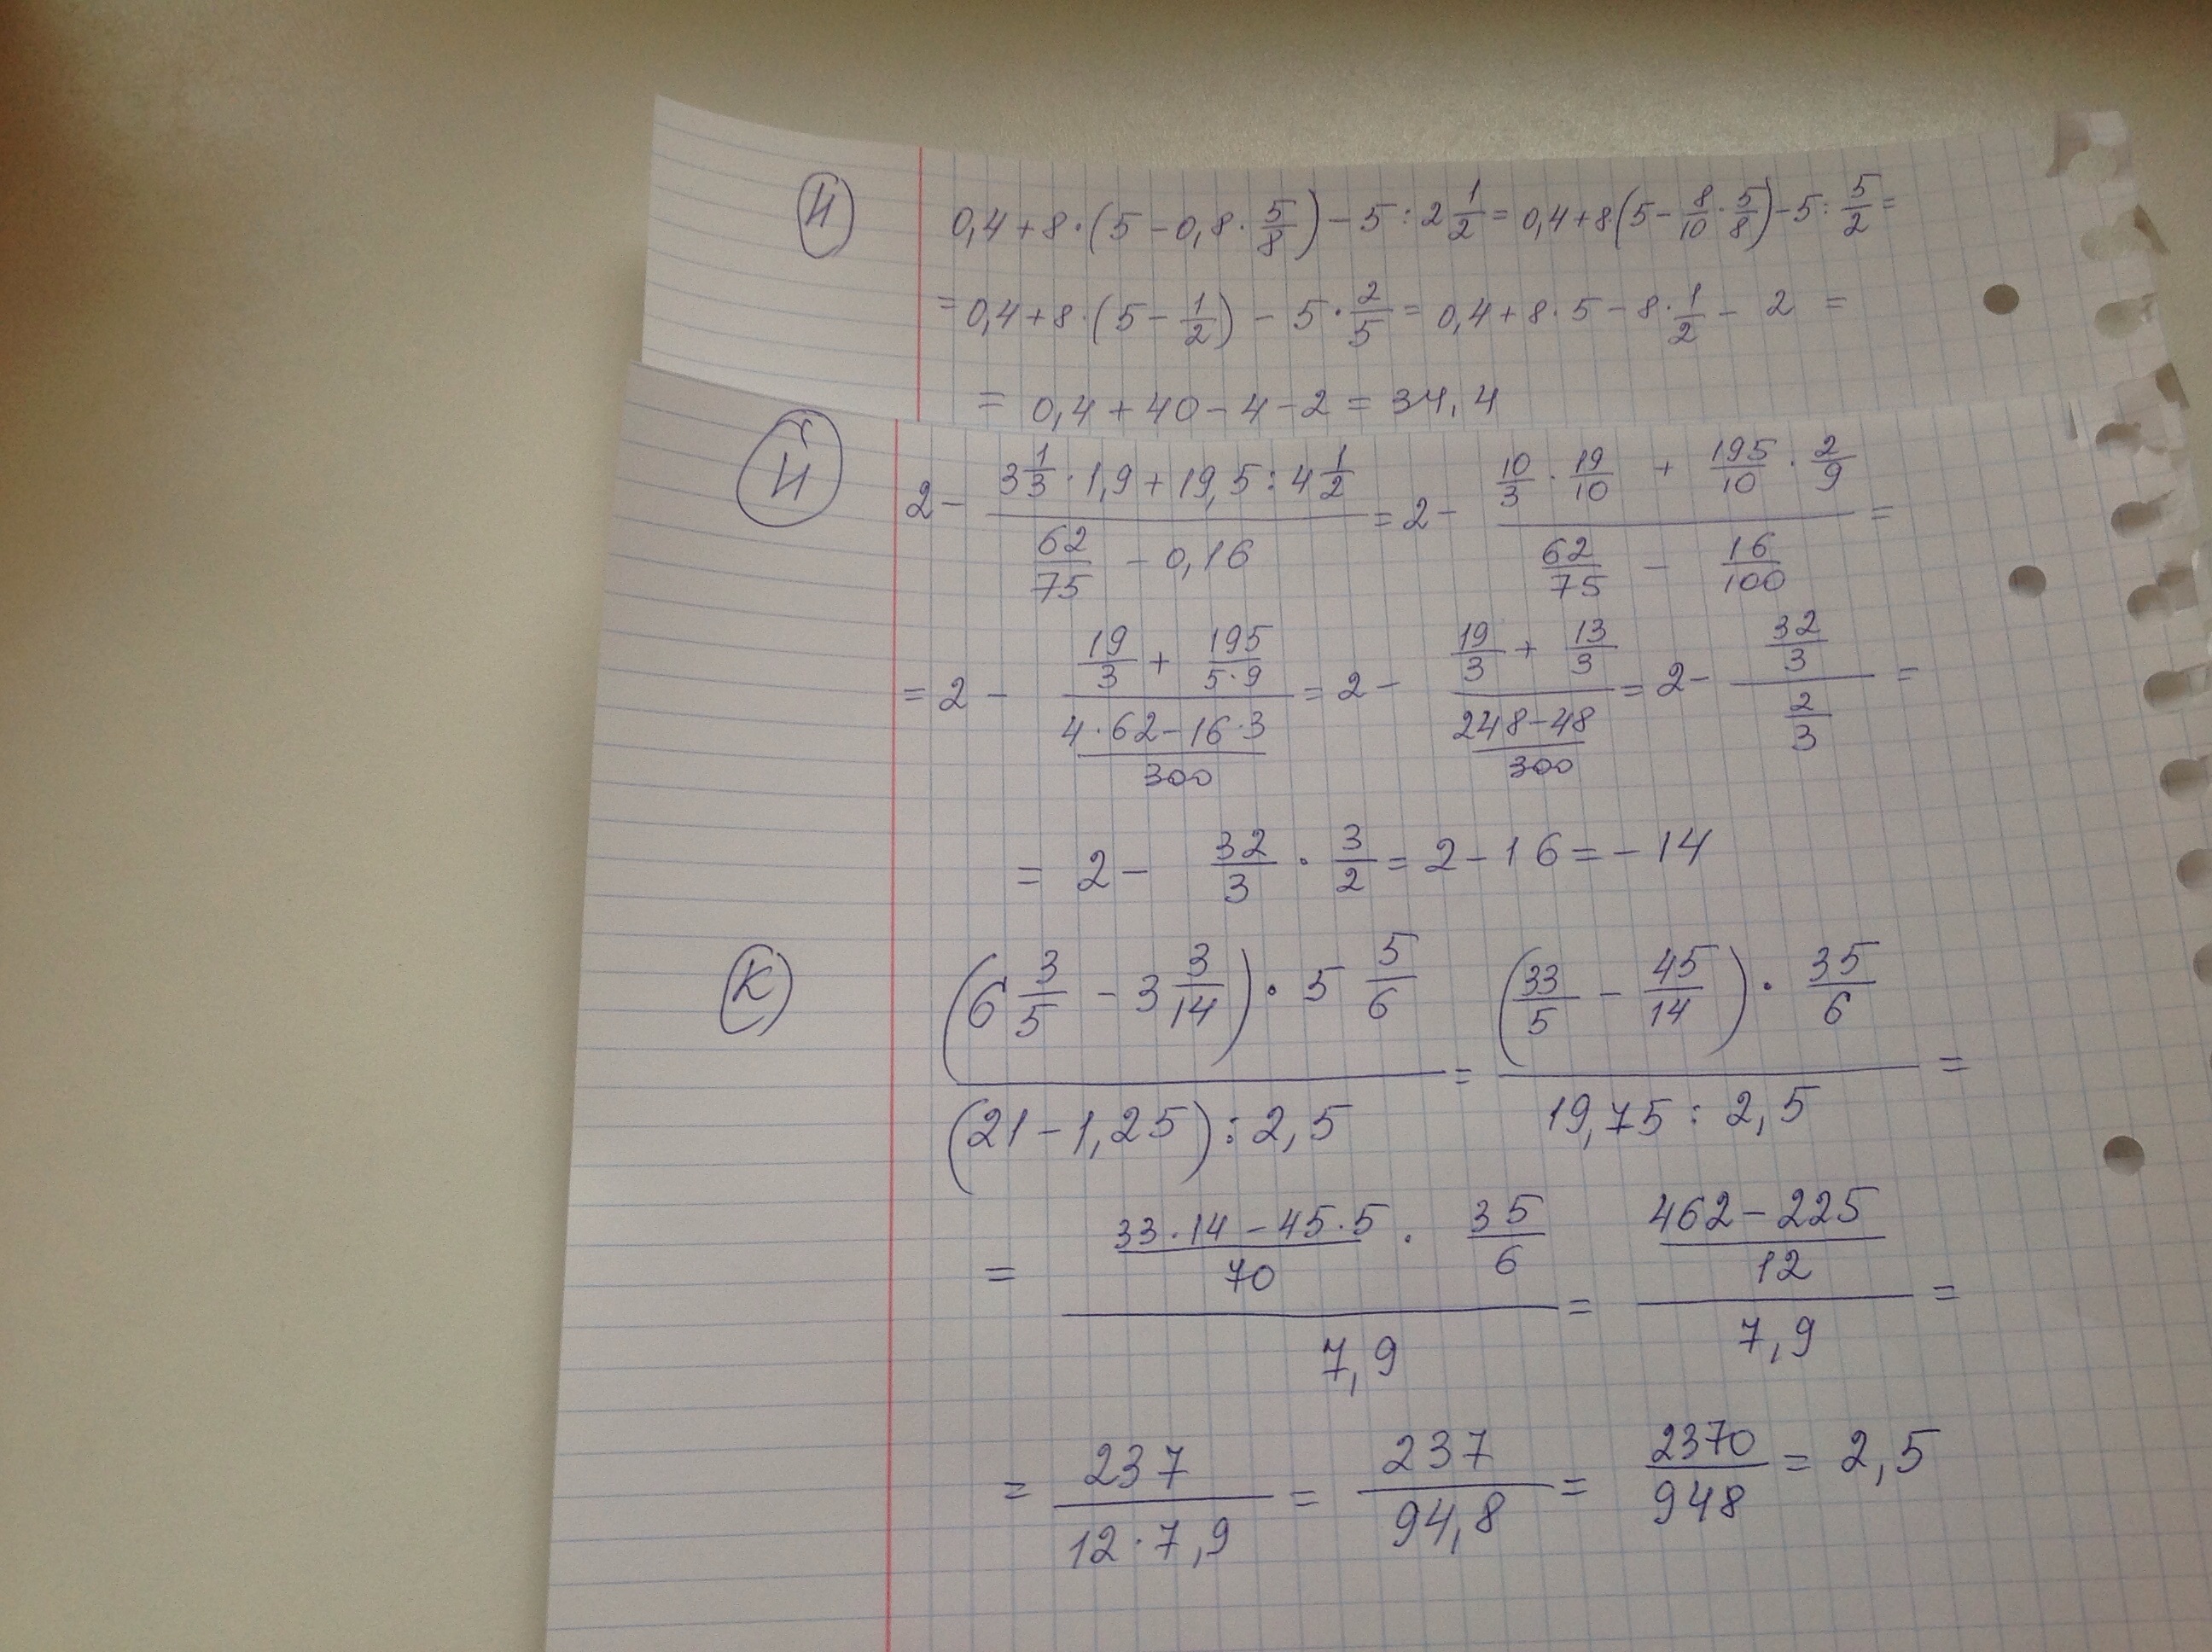 И 0,4+8·(5-0,8·5/8)-5:2 1/2=0,4+8(5-8/10·5/8)-5:5/2=
=0,4+8·(5-1/2)-5·2/5=0,4+8·5-8·1/2-2=
=0,4+40-4-2=34,4
Й 2-(3 1/3·1,9+19,5:4 1/2)/(62/75-0,16)=2-(10/3·19/10+195/10·2/9)/(62/75-16/100)=
=2-(19/3+195/(5·9))/((4·62-16·3)/300)=2-(19/3+13/3)/((248-48)/300)=2-(32/3)/(2/3)=
=2-32/3·3/2=2-16=-14
К ((6 3/5-3 3/14)·5 5/6)/((21-1,25):2,5)=((33/5-45/14)·35/6)/(19,75:2,5)=
=((33·14-45·5)/70·35/6)/7,9=((462-225)/12)/7,9=
=237/(12·7,9)=237/94,8=2370/948=2,5